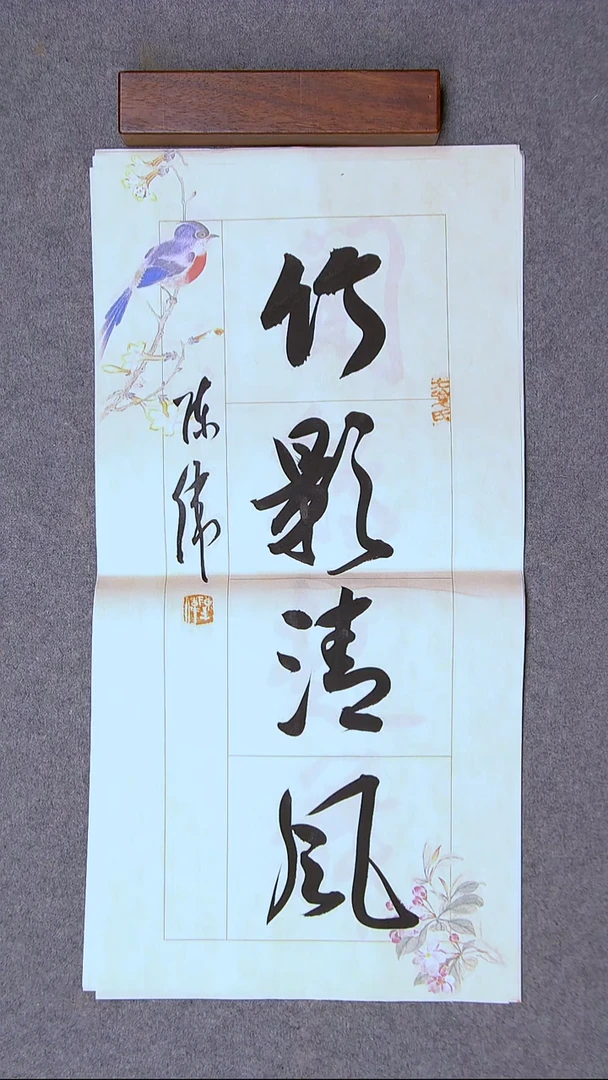 竹影清风
陈伟